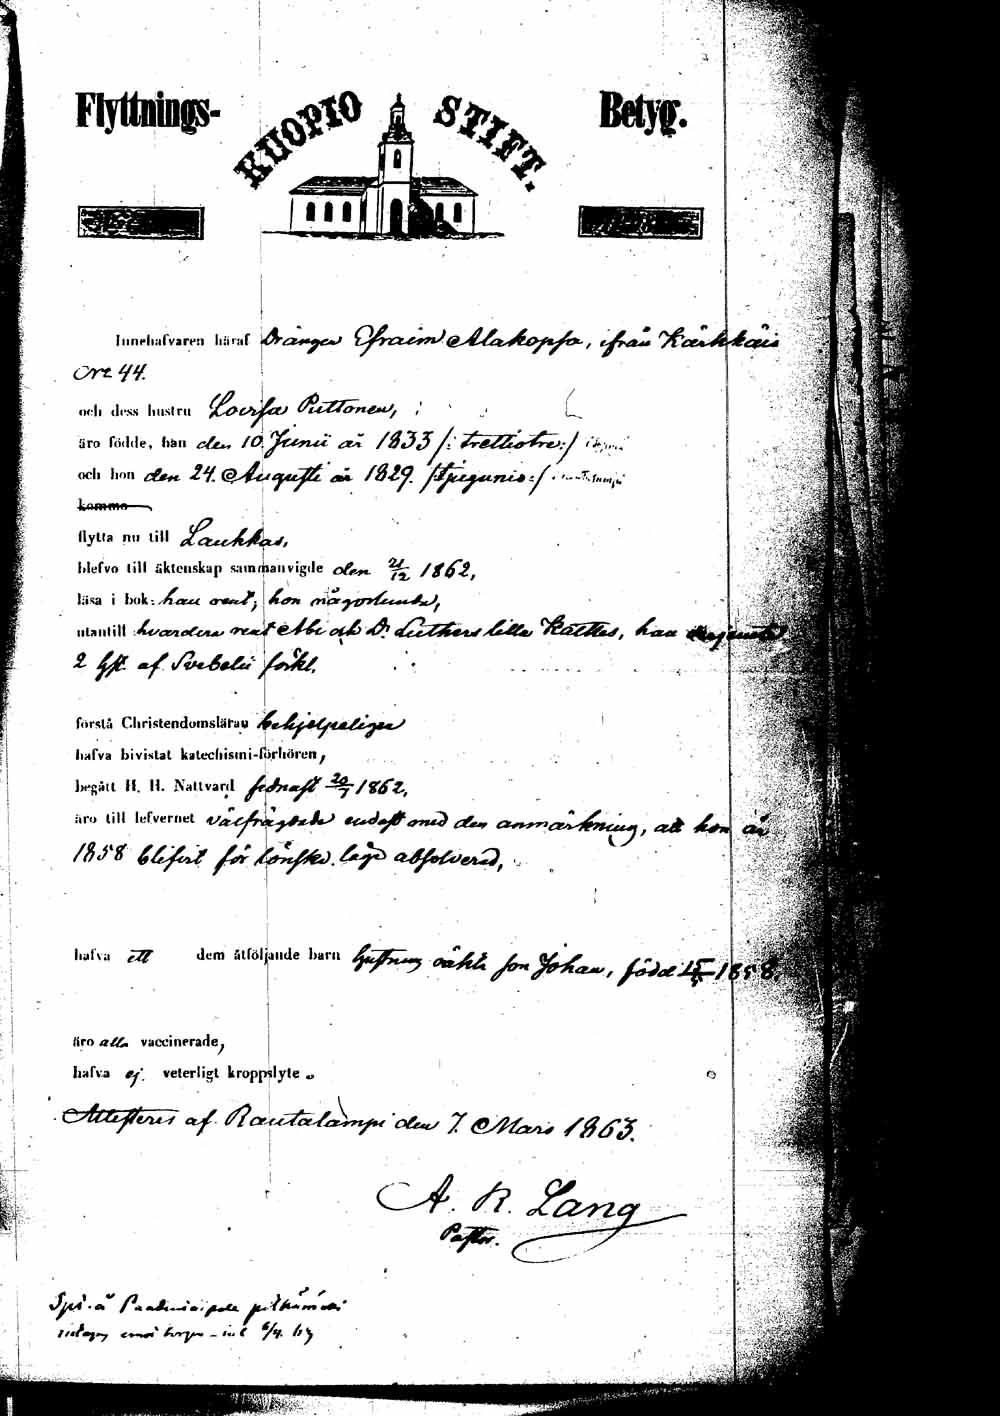 Flyttnings- KUOPIO STIFT. Betyg.
Innehafvaren häraf Drängen Efraim Alakopsa, ifrån Kärkkäis
No 44.
och dess hustru Lovisa Puttonen,
äro födde, han den 10 Junii år 1833 /: trettiotre :/
och hon den 24. Augusti år 1829. /: tjugunio :/
komma
flytta nu till Laukkas,
blefvo till äktenskap sammanvigde den 21/12 1862,
läsa i bok: han rent, hon någorlunda,
utantill hvardera rent Abc och Dr. Luthers lilla Kattes, han
2 hft af Svebelii förkl.
förstå Christendomsläran behjelpeligen
hafva bivistat katechismi-förhören,
begått H. H. Nattvard sednast 20/7 1862,
äro till lefvernet välfrägdade endast med den anmärkning, att hon år
1858 blifvit för lönska läge absolverad,
hafva ett dem åtföljande barn hustruns oäkta son Johan, född 1858.
äro alla vaccinerade,
hafva ej veterligt kroppslyte.
Attesteras af Rautalampi den 7. Mars 1863.
A. R. Lang
Pastor.